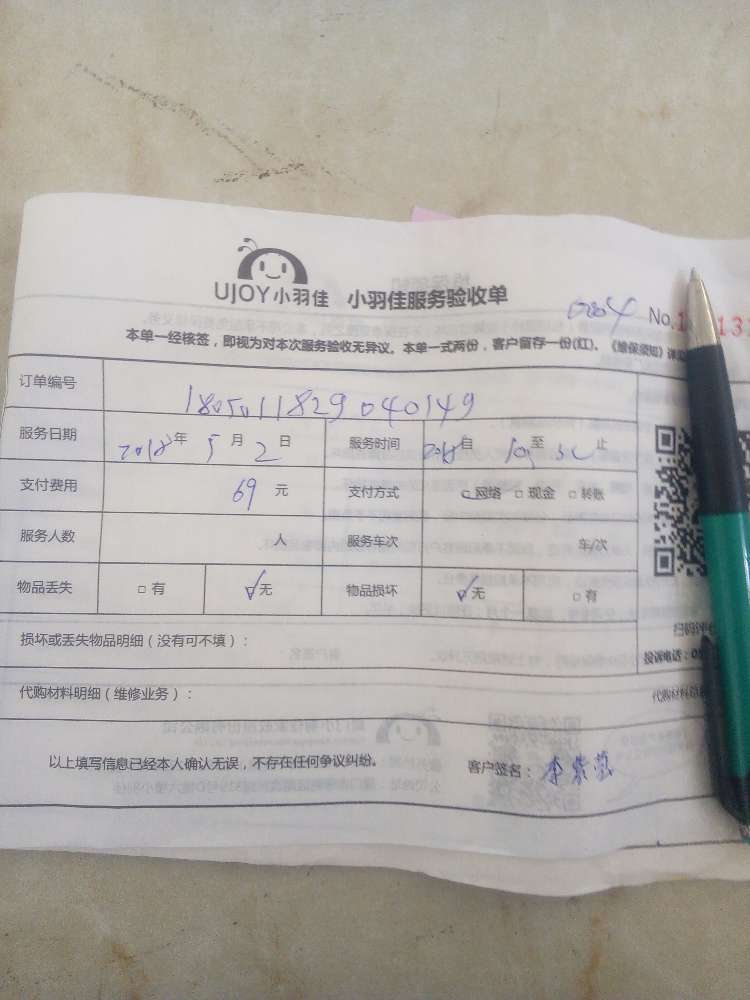 UJOY小羽佳 小羽佳服务验收单
0804 No.1 13
本单一经核签，即视为对本次服务验收无异议。本单一式两份，客户留存一份(红)。《维保须知》详见
订单编号 1805011829040149
服务日期 2018年 5月 2日 服务时间 自 至 止
支付费用 69元 支付方式 网络 □ 现金 □ 转账
服务人数 人 服务车次 车/次
物品丢失 □ 有 √无 物品损坏 √无 □ 有
扫码评
损坏或丢失物品明细（没有可不填）： 投诉电话：0
代购材料明细（维修业务）： 代购材料
以上填写信息已经本人确认无误，不存在任何争议纠纷。 客户签名：李